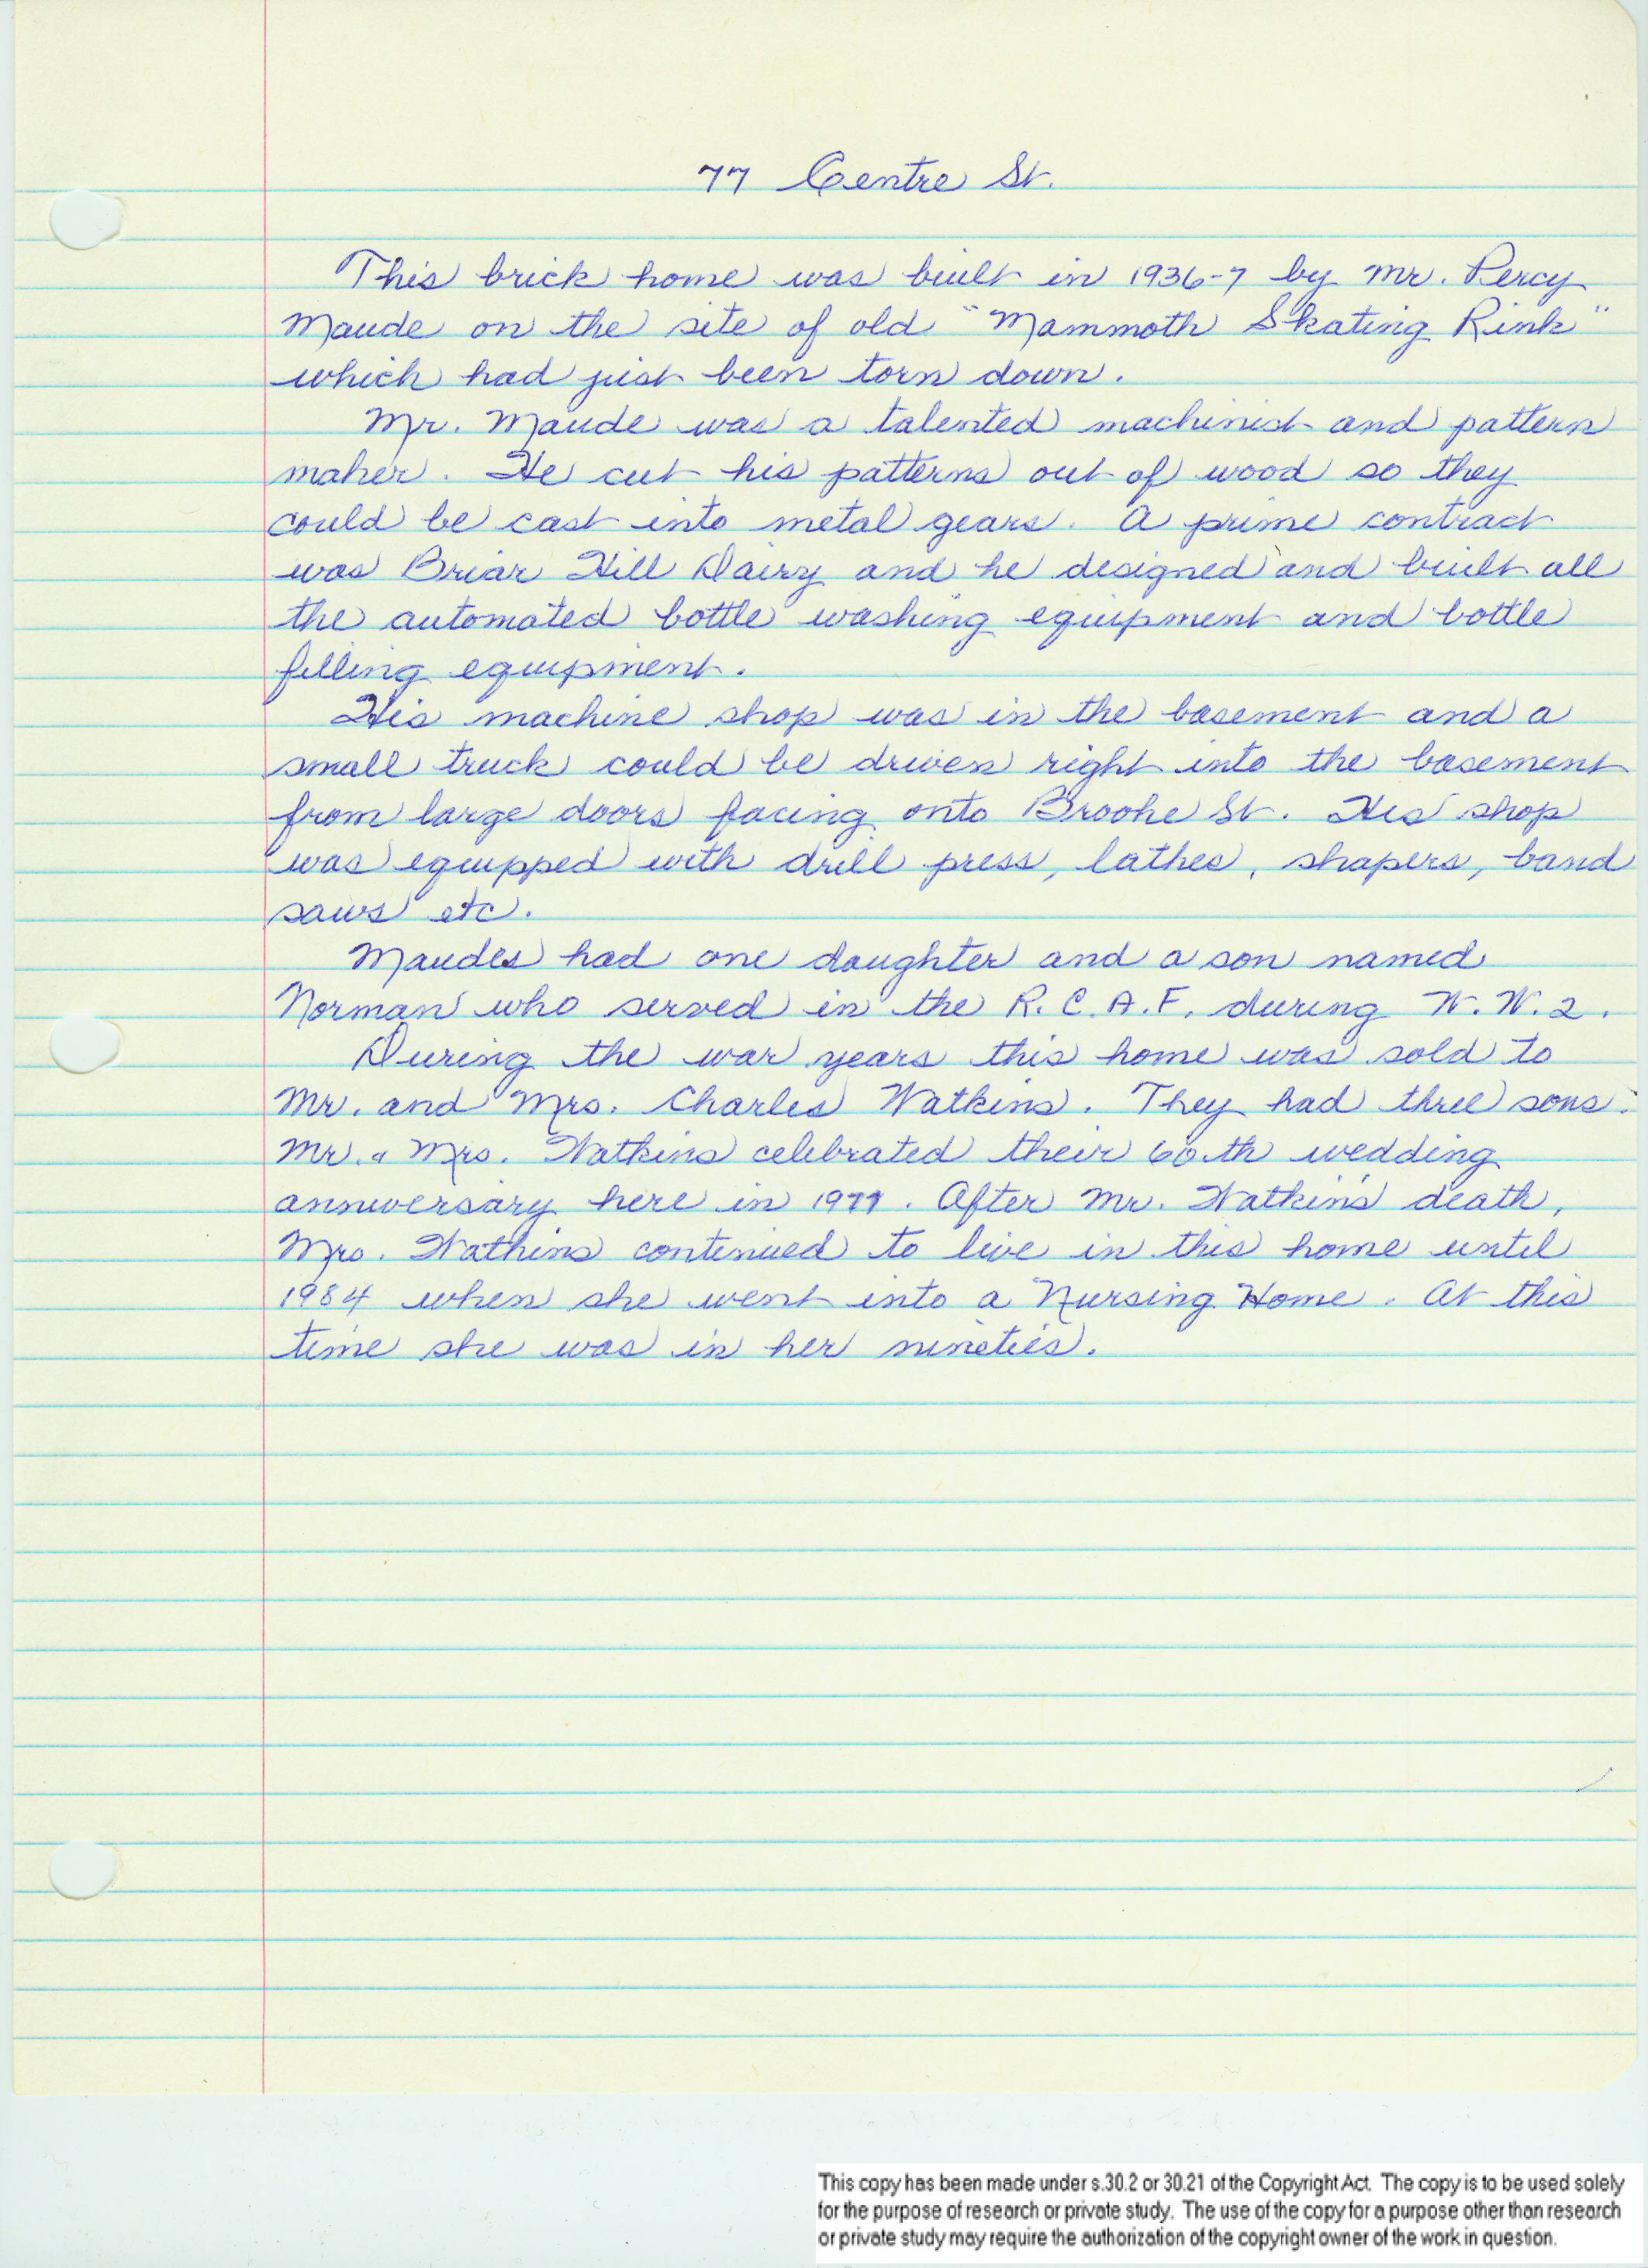 77 Centre St.
This brick home was built in 1936-7 by Mr. Percy
Maude on the site of old "Mammoth Skating Rink"
which had just been torn down.
Mr. Maude was a talented machinist and pattern
maker. He cut his patterns out of wood so they
could be cast into metal gears. A prime contract
was Briar Hill Dairy and he designed and built all
the automated bottle washing equipment and bottle
filling equipment.
His machine shop was in the basement and a
small truck could be driven right into the basement
from large doors facing onto Brooke St. His shop
was equipped with drill press, lathes, shapers, band
saws etc.
Maudes had one daughter and a son named
Norman who served in the R.C.A.F. during W.W.2.
During the war years this home was sold to
Mr. and Mrs. Charles Watkins. They had three sons.
Mr. & Mrs. Watkins celebrated their 60th wedding
anniversary here in 1977. After Mr. Watkins death,
Mrs. Watkins continued to live in this home until
1984 when she went into a Nursing Home. At this
time she was in her nineties.
This copy has been made under s.30.2 or 30.21 of the Copyright Act. The copy is to be used solely
for the purpose of research or private study. The use of the copy for a purpose other than research
or private study may require the authorization of the copyright owner of the work in question.